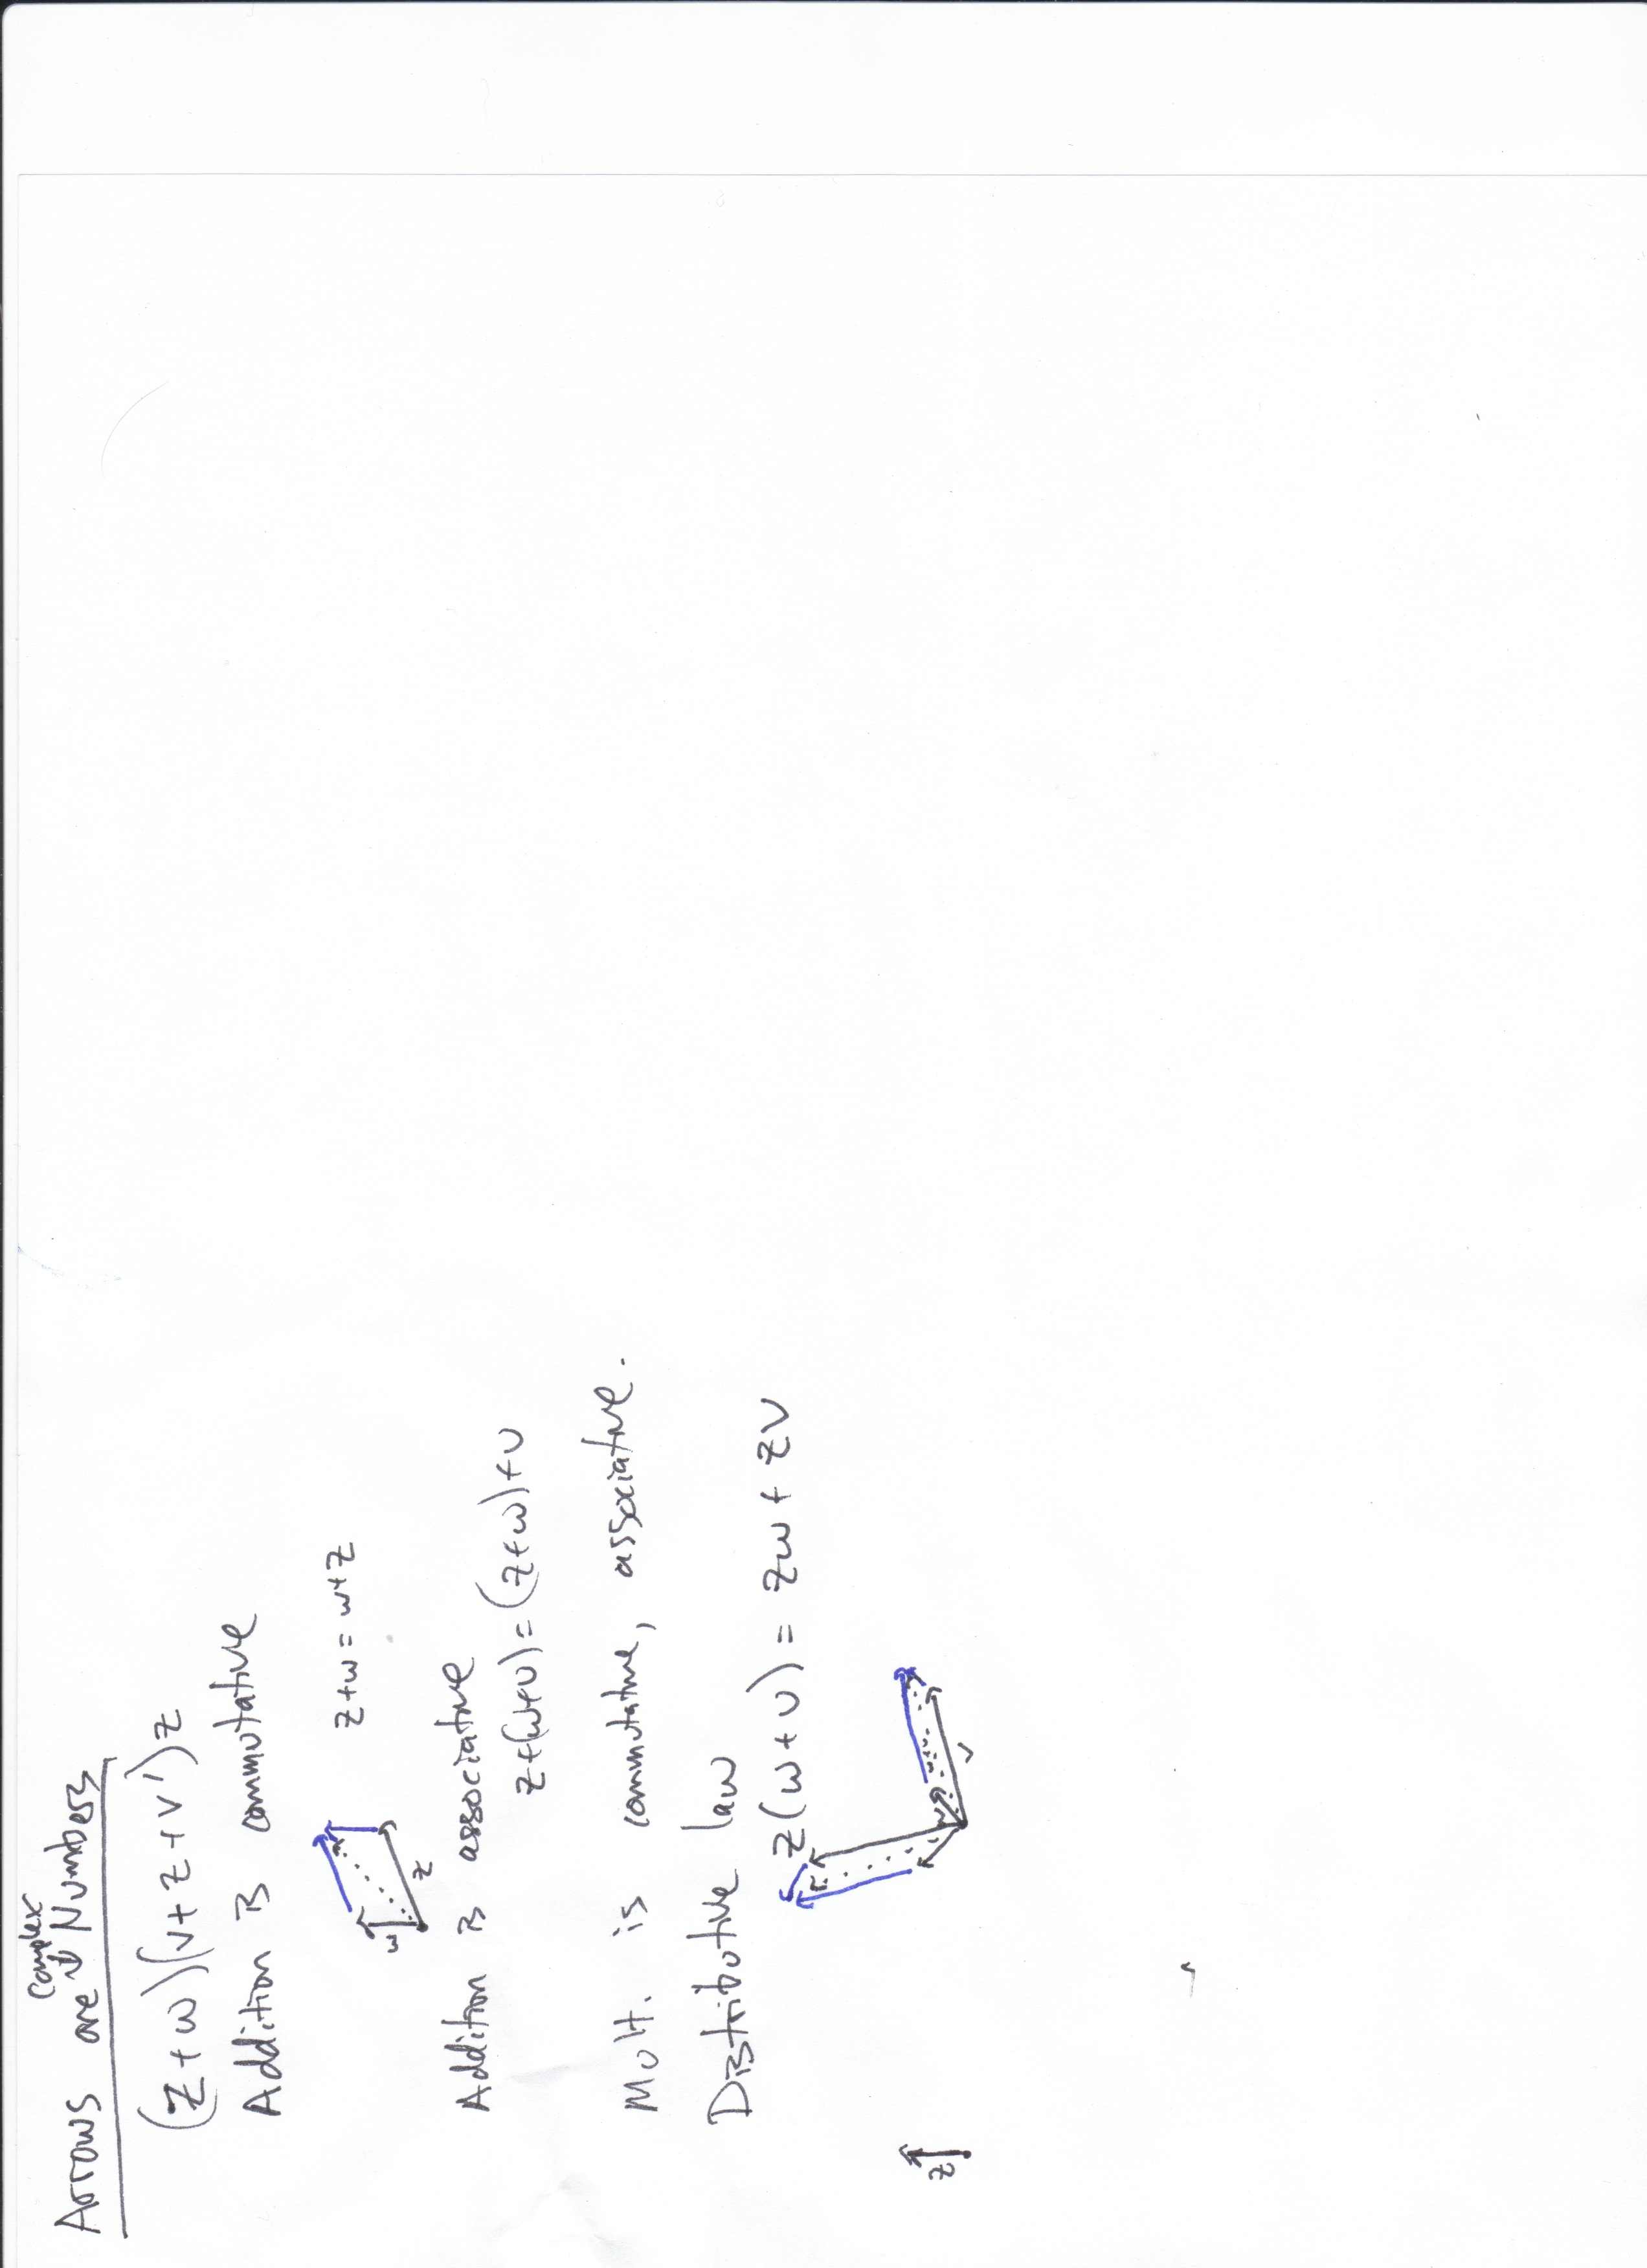 Arrows are complex Numbers
(z+w)(v+z+v')z
Addition is commutative
w
z
z+w = w+z
Addition is associative
z+(w+v) = (z+w)+v
Mult. is commutative, associative.
Distributive law
z(w+v) = zw + zv
z
w
v